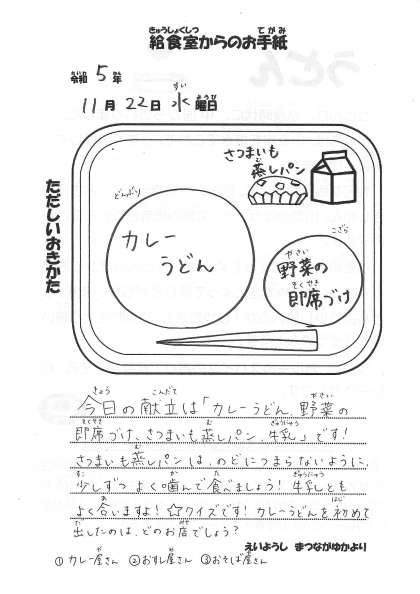 給食室からのお手紙
令和 5 年
11月 22日 水曜日
ただしいおきかた
さつまいも
蒸しパン
どんぶり
カレー
うどん
こざら
野菜の
即席づけ
今日の献立は「カレーうどん、野菜の
即席づけ、さつまいも蒸しパン、牛乳」です!
さつまいも蒸しパンは、のどにつまらないように、
少しずつよく噛んで食べましょう!牛乳とも
よく合いますよ!☆クイズです!カレーうどんを初めて
出したのは、どのお店でしょう?
えいようし まつながゆかより
①カレー屋さん ②おすし屋さん ③おそば屋さん